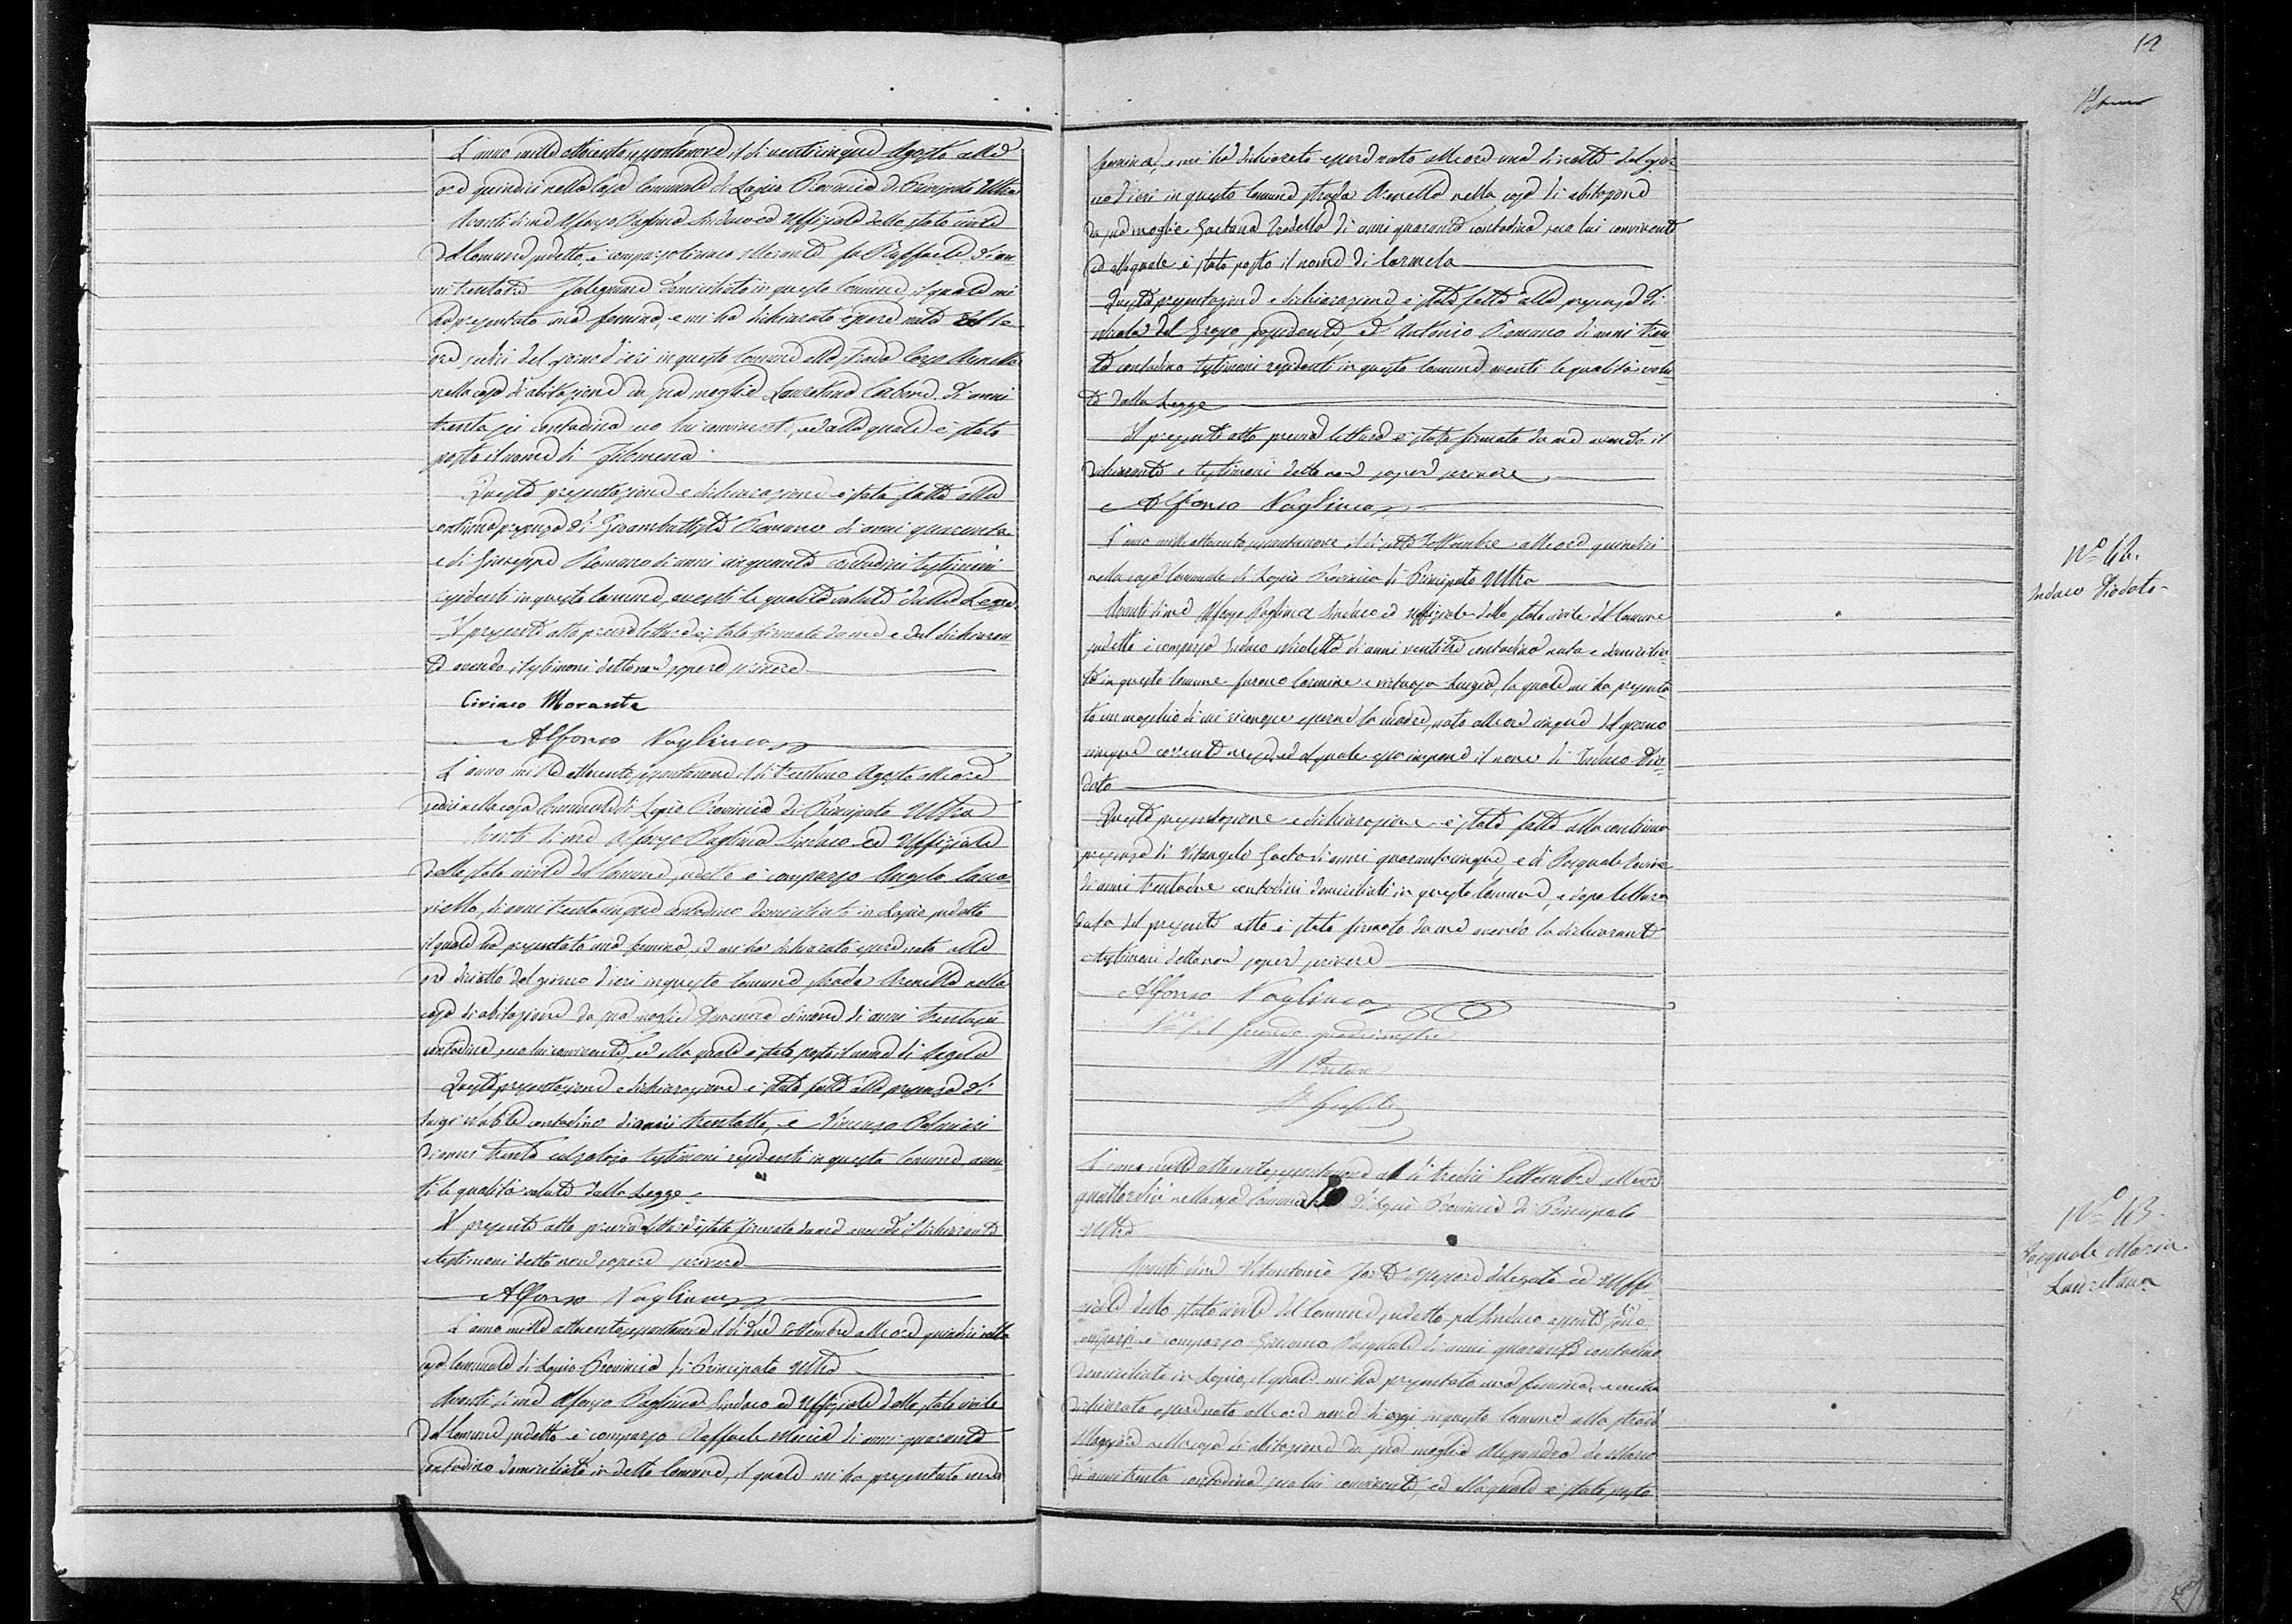 L'anno mille ottocento sessantanove, il dì venticinque Agosto alle
ore quindici nella Casa Comunale di Lapio Provincia di Principato Ultra
Avanti di me Alfonso Vaglinca Sindaco ed Uffiziale dello stato civile
del Comune sudetto, è comparso Ciriaco Morante fu Raffaele di an-
ni trentatre Falegname domiciliato in questo Comune, il quale mi
ha presentato una femina, e mi ha dichiarato essere nata alle
ore sedici del giorno d'ieri in questo Comune alla strada Corso Arenella
nella casa di abitazione da sua moglie Lauretana Carbone di anni
trentasei contadina seco lui convivente, ed alla quale è stato
posto il nome di Filomena
Questa presentazione e dichiarazione è stata fatta alla
continua presenza di Giovambattista Romano di anni quaranta
e di Giuseppe Romano di anni cinquanta contadini testimoni
residenti in questo Comune, aventi le qualità volute dalla Legge.
Il presente atto previa lettura è stato firmato da me e dal dichiaran-
te avendo i testimoni detto non sapere scrivere
Ciriaco Morante
Alfonso Vaglinca
L'anno mille ottocento sessantanove il dì trentuno Agosto alle ore
sedici nella casa Comunale di Lapio Provincia di Principato Ultra
Avanti di me Alfonso Vaglinca Sindaco ed Uffiziale
dello stato civile del Comune sudetto è comparso Angelo Cava-
riello, di anni trentacinque contadino domiciliato in Lapio sudetto
il quale ha presentato una femina, ed mi ha dichiarato essere nata alle
ore diciotto del giorno d'ieri in questo Comune strada Arenella nella
casa di abitazione da sua moglie Simone di anni trentasei
contadina seco lui convivente, ed alla quale è stato posto il nome di Angela
Questa presentazione e dichiarazione è stata fatta alla presenza di
Luigi contadino di anni trentotto, e Vincenzo Palmieri
di anni trenta calzolajo testimoni residenti in questo Comune aven-
ti le qualità volute dalla Legge
Il presente atto previa lettura è stato firmato da me avendo il dichiarante
e testimoni detto non sapere scrivere
Alfonso Vaglinca
L'anno mille ottocento sessantanove il dì due Settembre alle ore quindici nella
casa Comunale di Lapio Provincia di Principato Ultra
Avanti di me Alfonso Vaglinca Sindaco ed Uffiziale dello stato civile
del Comune sudetto è comparso Raffaele di anni quaranta
contadino domiciliato in detto Comune, il quale mi ha presentato una
12
femina, e mi ha dichiarato essere nata alle ore una di notte del gior-
no d'ieri in questo Comune strada Arenella nella casa di abitazione
da sua moglie Gaetana di anni quaranta contadina seco lui convivente
ed alla quale è stato posto il nome di Carmela
Questa presentazione e dichiarazione è stata fatta alla presenza di
Nicola del Grosso, possidente, ed Antonio Romano di anni tren-
ta contadino testimoni residenti in questo Comune, aventi le qualità volu-
te dalla Legge
Il presente atto previa lettura è stato firmato da me avendo il
dichiarante e testimoni detto non sapere scrivere
Alfonso Vaglinca
L'anno mille ottocento sessantanove il dì sette Settembre alle ore quindici
nella casa Comunale di Lapio Provincia di Principato Ultra
Avanti di me Alfonso Vaglinca Sindaco ed Uffiziale dello stato civile del Comune
sudetto è comparsa Indaco Nicoletta di anni ventitre contadina nata e domicilia-
ta in questo Comune furono Carmine e Luigia, la quale mi ha presenta-
to un maschio di cui riconosce essere la madre, nato alle ore cinque del giorno
cinque corrente mese, ed al quale essa impone il nome di Indaco Dio-
dato
Questa presentazione e dichiarazione è stata fatta alla continua
presenza di Vitangelo Gaeta di anni quarantacinque, e di Pasquale
di anni trentadue contadini domiciliati in questo Comune, e dopo lettura
data del presente atto è stato firmato da me avendo la dichiarante
e testimoni detto non sapere scrivere
Alfonso Vaglinca
Visto pel secondo quadrimestre
Il Pretore
L'anno mille ottocento sessantanove al dì tredici Settembre alle ore
quattordici nella casa Comunale di Lapio Provincia di Principato
Ultra
Avanti di me Vitantonio Assessore delegato ed Uffi-
ziale dello stato civile del Comune sudetto pel Sindaco assente
è comparso Giacomo Pasquale di anni quaranta contadino
domiciliato in Lapio, il quale mi ha presentato una femina, e mi ha
dichiarato essere nata alle ore nove di oggi in questo Comune alla strada
Maggiore nella casa di abitazione da sua moglie Alessandra de Marco
di anni trenta contadina seco lui convivente, ed alla quale è stato posto
N.° 42.
Indaco Diodato
N.° 43.
Pasquale Maria
Lauretana